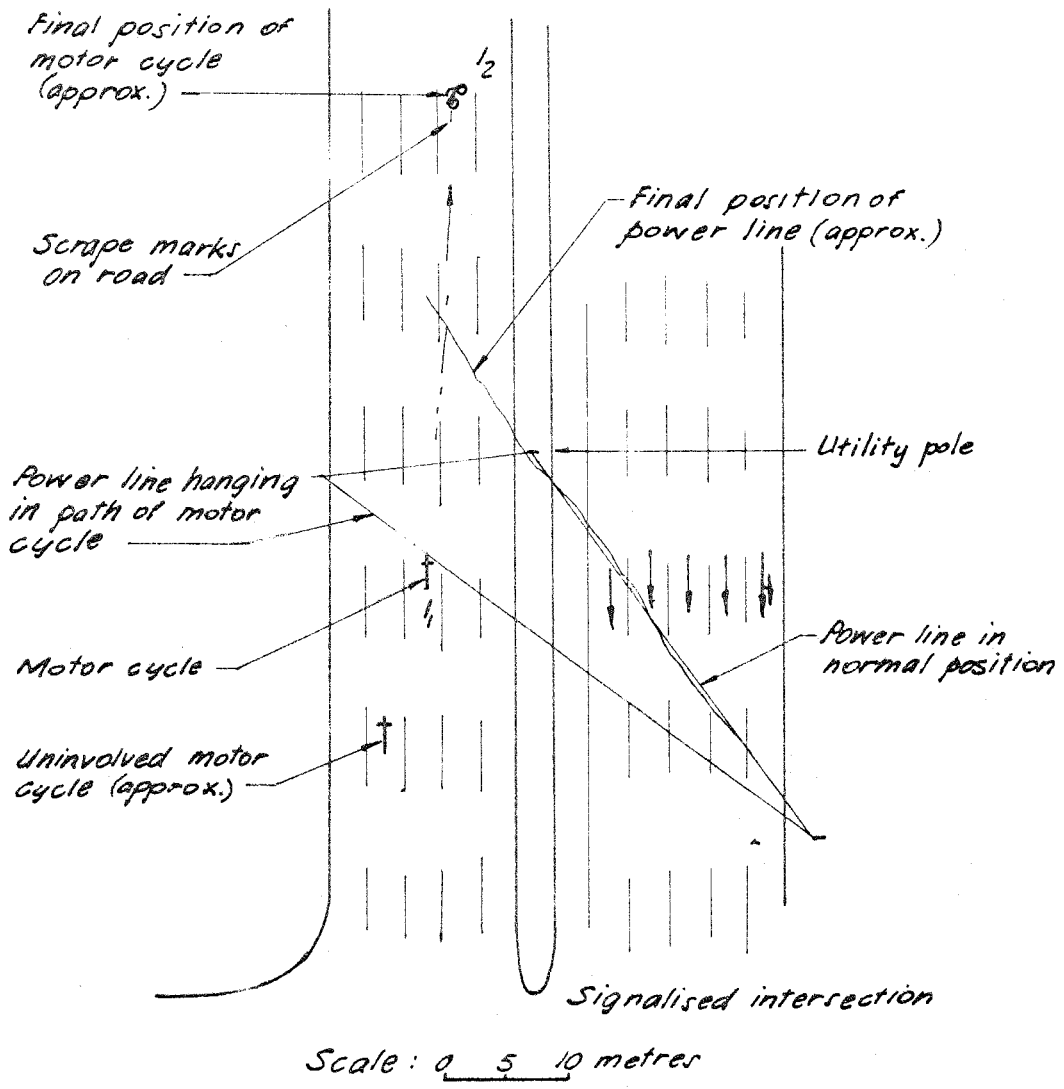 Final position of
motor cycle
(approx.)
1₂
Scrape marks
on road
Final position of
power line (approx.)
Utility pole
Power line hanging
in path of motor
cycle
1₁
Motor cycle
Power line in
normal position
Uninvolved motor
cycle (approx.)
Signalised intersection
Scale: 0 5 10 metres